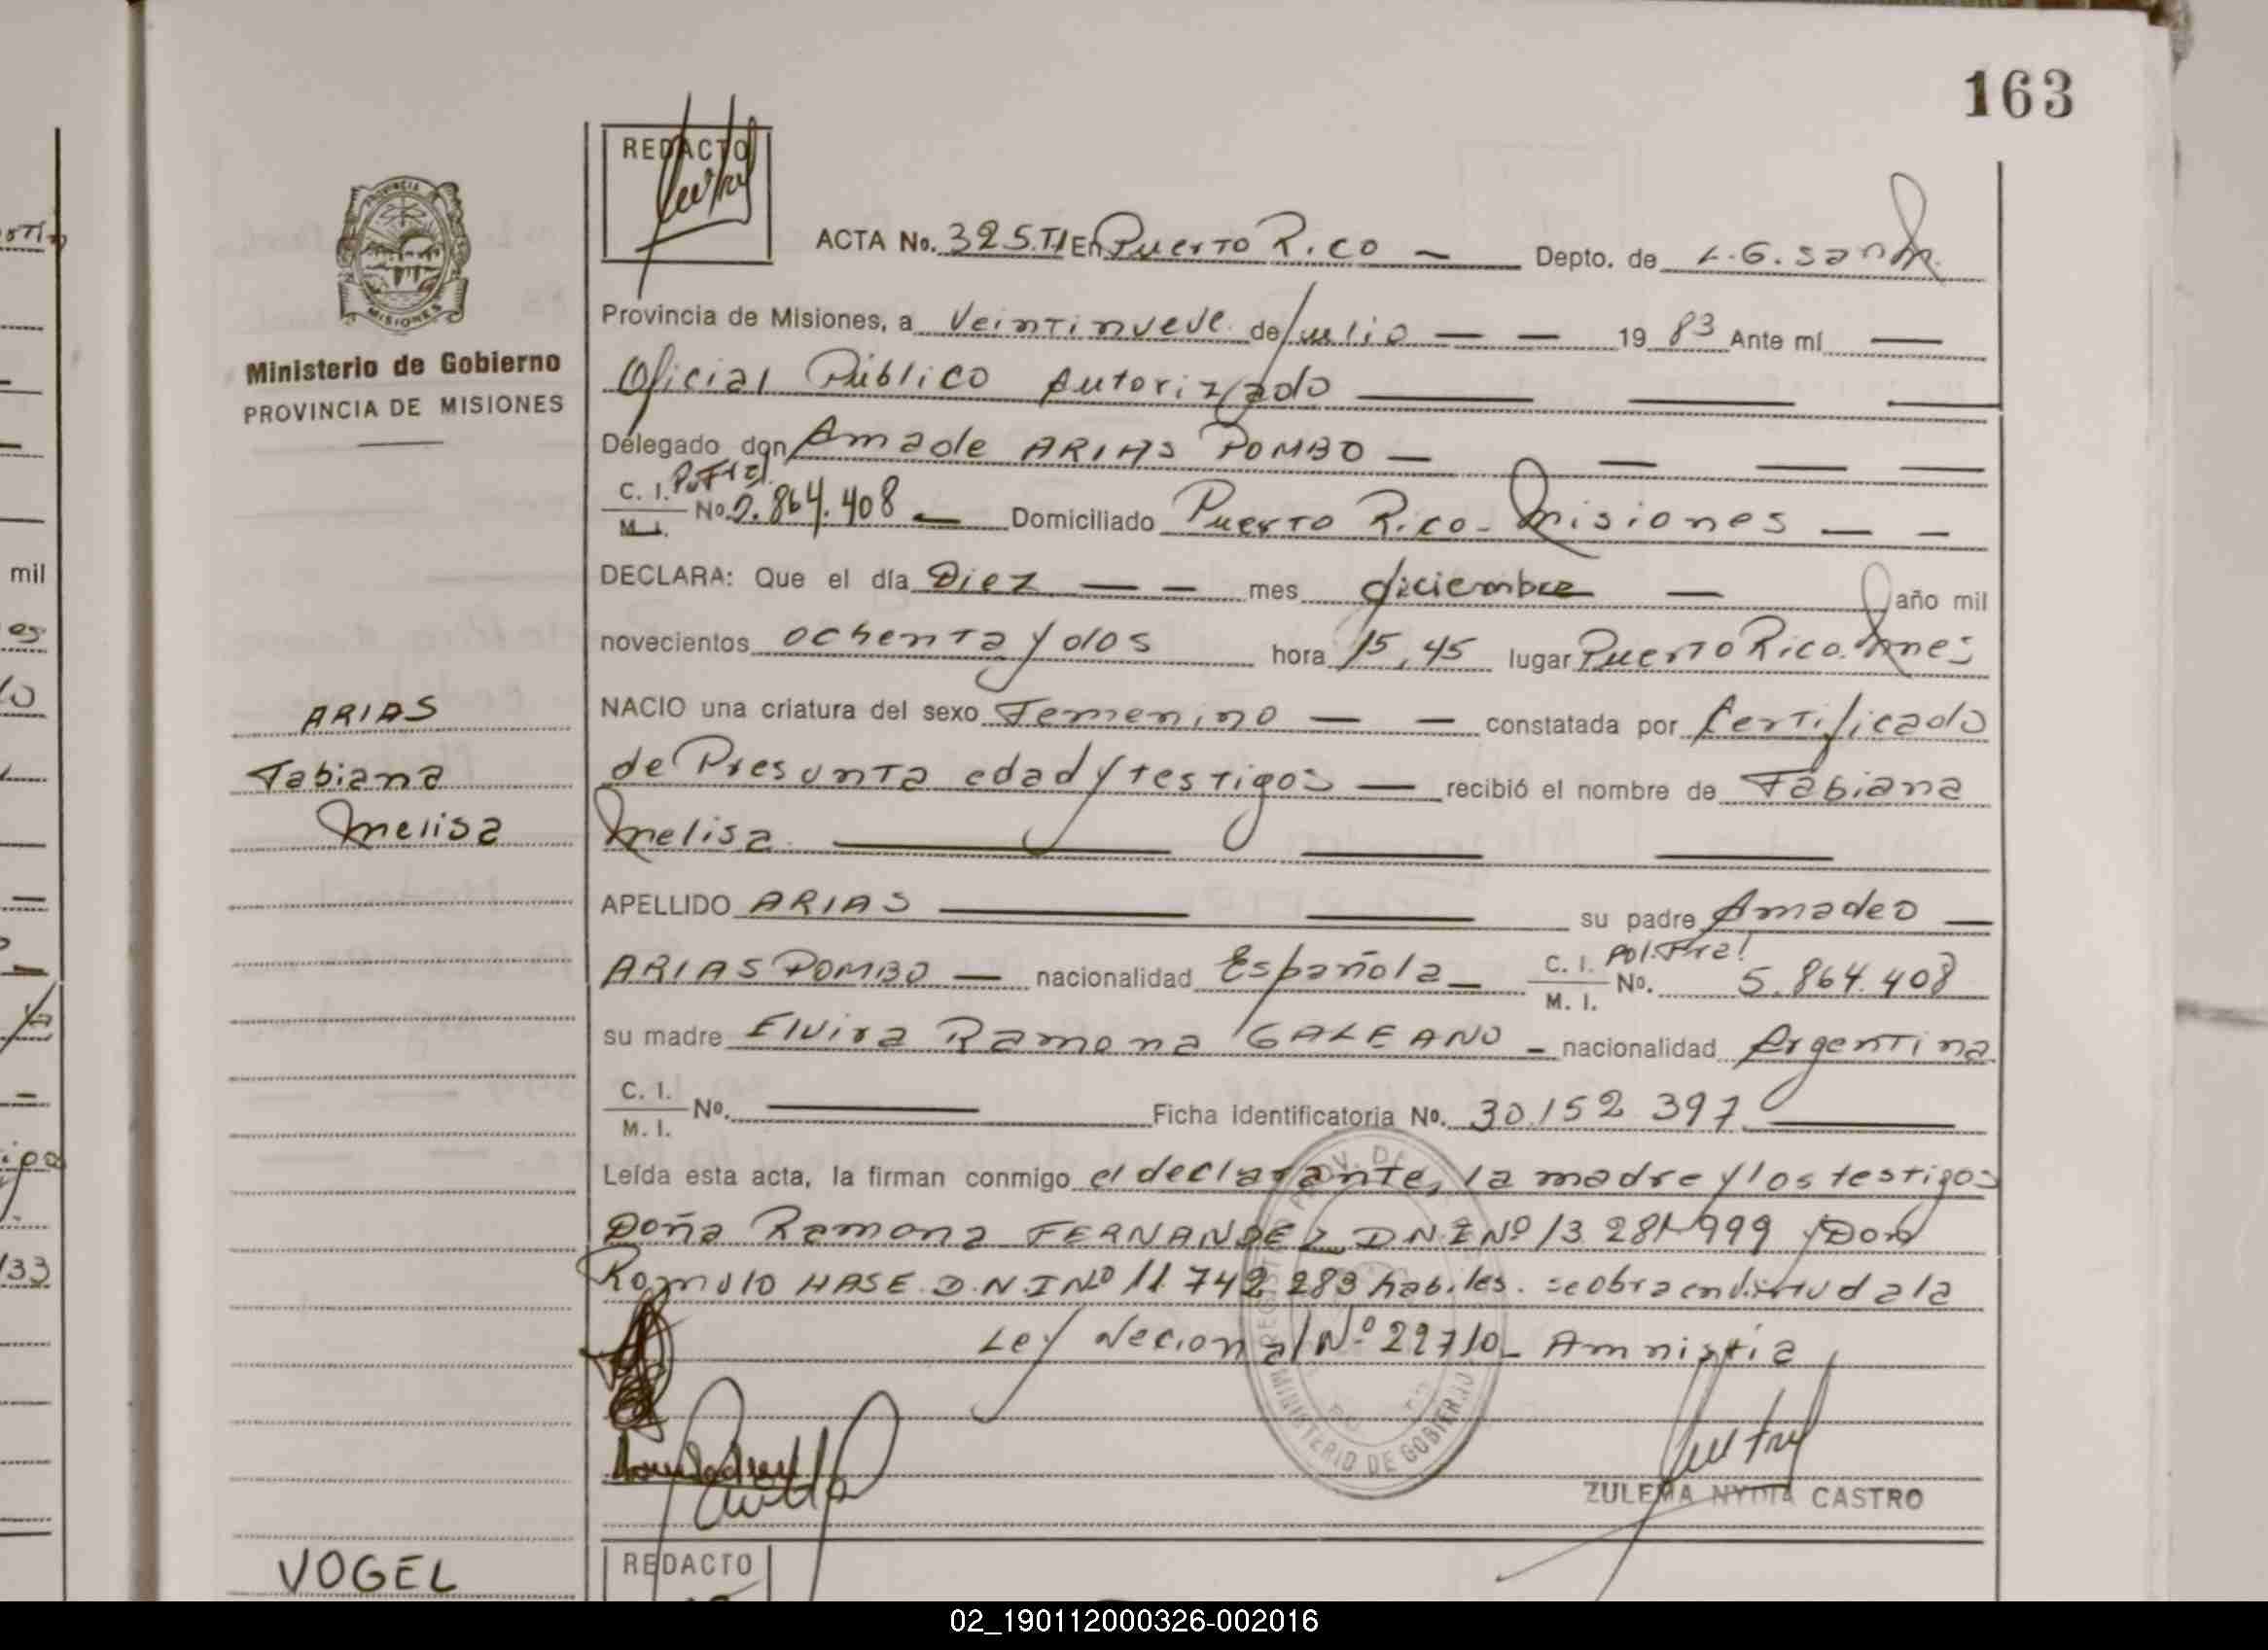 163
REDACTO
ACTA No. 325.T/En Puerto Rico — Depto. de L.G. San M.
PROVINCIA
MISIONES
Provincia de Misiones, a Veintinueve de Julio — — 1983 Ante mí —
Ministerio de Gobierno
PROVINCIA DE MISIONES
Oficial Público Autorizado — — —
Delegado don Amade ARIAS POMBO — — — —
C. I. Pol. Fral.
M. I. No. 5.864.408 — Domiciliado Puerto Rico - Misiones — —
DECLARA: Que el día Diez — — mes diciembre — año mil
novecientos ochenta y dos hora 15,45 lugar Puerto Rico. Mnes
ARIAS
NACIO una criatura del sexo Femenino — — constatada por Certificado
Fabiana
de Presunta edad y testigos — recibió el nombre de Fabiana
Melisa
Melisa — — —
APELLIDO ARIAS — — su padre Amadeo —
ARIAS POMBO — nacionalidad Española — C. I. Pol. Fral M. I. No. 5.864.408
su madre Elvira Ramona GALEANO - nacionalidad Argentina
C. I. M. I. No. — Ficha identificatoria No. 30.152.397 —
Leída esta acta, la firman conmigo el declarante, la madre y los testigos
Doña Ramona FERNANDEZ DNI Nº 13.281.999 y Don
Romulo HASE D.N.I Nº 11.742.283 habiles. se obra en virtud a la
Ley Necional Nº 22710 - Amnistia
MINISTERIO DE GOBIERNO
ZULEMA NYDIA CASTRO
VOGEL
REDACTO
mil
es
133
02_190112000326-002016